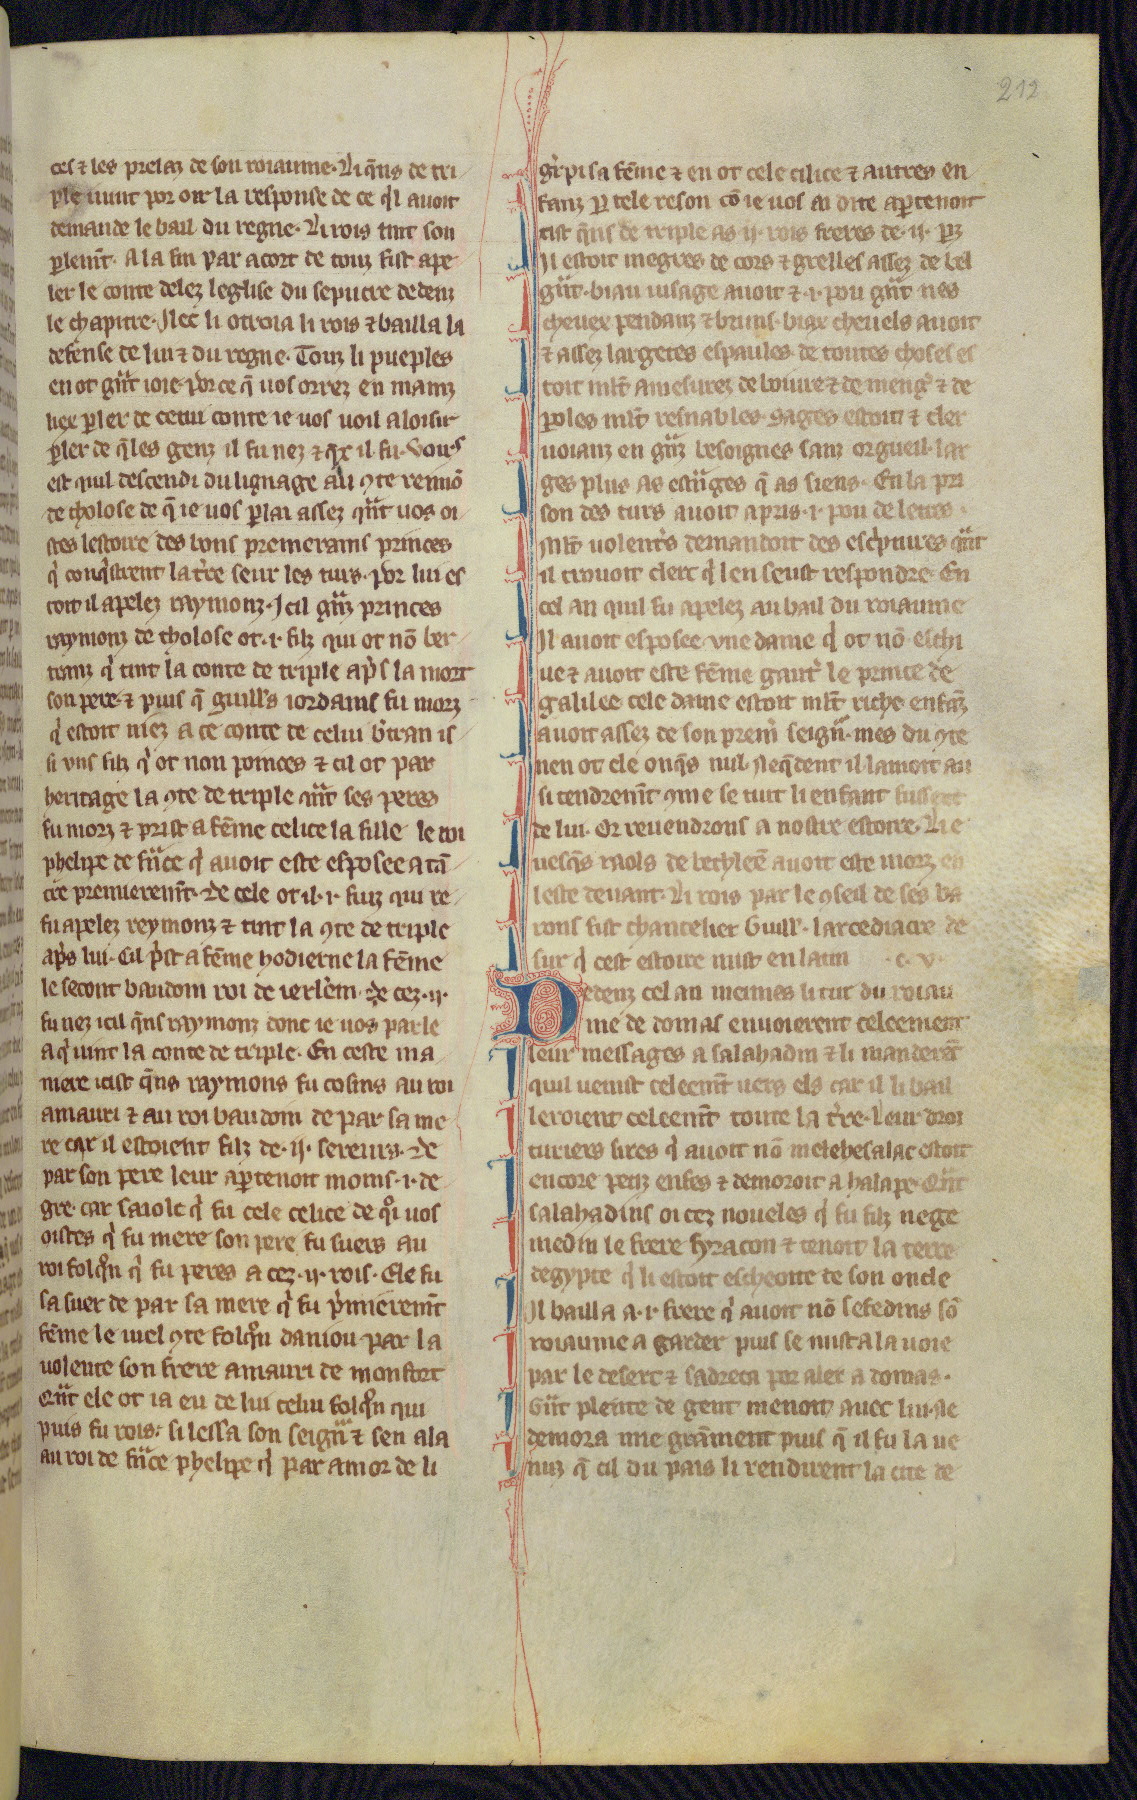 212
ces ⁊ les prelaz de son roiaume. Li q̃ns de tri
ple uint por oir la response de ce q̃l auoit
demande le bail du regne. Li rois tint son
ꝑlem̃t. A la fin par acort de touz fist ape
ler le conte delez leglise du sepucre dedenz
le chapitre. Ilec li otroia li rois ⁊ bailla la
defense de lui ⁊ du regne. Touz li pueples
en ot gñt ioie. por ce q̃ uos orrez en maniz
liex ꝑler de cetui conte ie uos uoil a loisir
ꝑler de q̃les genz il fu nez ⁊ q̃x il fu. Voirs
est quil descendi du lignage au ꝯte remõ
de tholose de q̃ ie uos ꝑlai assez q̃nt uos oi
stes lestoire des bons premerains princes
q̓ conq̓strent la t̃re seur les turs. por lui es
toit il apelez raymonz. Icil gñz princes
raymonz de tholose ot .i. filz qui ot nõ ber
tranz q̓ tint la conte de triple ap̃s la mort
son pere. ⁊ puis q̃ guill's iordains fu morz
q̓ estoit niez a ce conte de celui b̓tran is
si uns filz q̓ ot non poinces ⁊ cil ot par
heritage la ꝯte de triple q̃nt ses peres
fu morz ⁊ prist a fẽme celice la fille le roi
phelipe de fñce q̓ auoit este esposee a tã
cre premierem̃t. De cele ot il .i. fuiz qui re
fu apelez reymonz ⁊ tint la ꝯte de triple
ap̃s lui. Cil p̓st a fẽme hodierne la fẽme
le secont baudoin roi de ierl'em. De cez .ii.
fu nez icil q̃ns raymonz donc ie uos parle
a q̓ uint la conte de triple. En ceste ma
niere icist q̃ns raymons fu cosins au roi
amauri ⁊ au roi baudoin de par sa me
re car il estoient filz de .ii. sereurs. De
par son pere leur aꝑtenoit moins .i. de
gre. car saiole q̓ fu cele celice de q̓i uos
oistes q̓ fu mere son pere fu suers au
roi folq̓n q̓ fu peres a cez .ii. rois. Ele fu
sa suer de par sa mere q̓ fu p̓mierem̃t
fẽme le uiel ꝯte folq̓n daniou. par la
uolente son frere amauri de monfort
Q̃nt ele ot ia eu de lui celui folq̓n qui
puis fu rois. si lessa son seign̄r ⁊ sen ala
au roi de fñce phelipe q̓ par amor de li
g̓rpi sa fẽme ⁊ en ot cele cilice ⁊ autres en
fanz ꝑ tele reson cõ ie uos ai dite aꝑtenoit
cist q̃ns de triple as .ii. rois freres de .ii. ꝑz
Il estoit megres de cors ⁊ grelles assez de bel
g̃nt. biau uisage auoit ⁊ .i. pou g̃nt nes
cheuex pendanz ⁊ bruns. biax cheuels auoit
⁊ assez largetes espaules. de toutes choses es
toit ml̃t amesurez de boiure ⁊ de meng̓ ⁊ de
ꝑoles ml̃t resnables. Sages estoit ⁊ cler
uoianz en g̃nz besoignes sanz orgueil. lar
ges plus as estr̃ges q̃ as siens. En la pri
son des turs auoit apris .i. pou de letres
Ml̃t uolent̓s demandoit des esc̓ptures q̃nt
il trouoit clerc q̓ len seust respondre. En
cel an quil fu apelez au bail du roiaume
Il auoit esposee une dame q̓ ot nõ eschi
ue ⁊ auoit este fẽme gaut̓ le prince de
galilee. cele dame estoit ml̃t riche enfãz
auoit assez de son prem̓ seign̄r. mes du ꝯte
nen ot ele onq̃s nul. Neq̃dent il lamoit au
si tendrem̃t ꝯme se tuit li enfant fussent
de lui. Or reuendrons a nostre estoire. Li e
uesq̃s raols de bethleẽ auoit este morz en
leste deuant. Li rois par le ꝯseil de ses ba
rons fist chancelier Guill'. larcediacre de
sur q̓ cest estoire mist en latin .c. v.
Dedenz cel an meimes li tur du roiau
me de domas enuoierent celeement
leur messages a salahadin ⁊ li manderẽt
quil uenist celeem̃t uers els car il li bail
leroient celeem̃t toute la t̃re. Leur droi
turiers sires q̓ auoit nõ melehesalac estoit
encore petiz enfes ⁊ demoroit a halape. Q̃nt
salahadins oi cez noueles q̓ fu filz nege
medin le frere syracon ⁊ tenoit la terre
degypte q̓ li estoit escheoite de son oncle
Il bailla a .i. frere q̓ auoit nõ sefedins sõ
roiaume a garder puis se mist a la uoie
par le desert ⁊ sadreca por aler a domas.
G̃nt plente de gent menoit auec lui. Ne
demora mie grãment puis q̃ il fu la ue
nuz q̃ cil du pais li rendirent la cite de